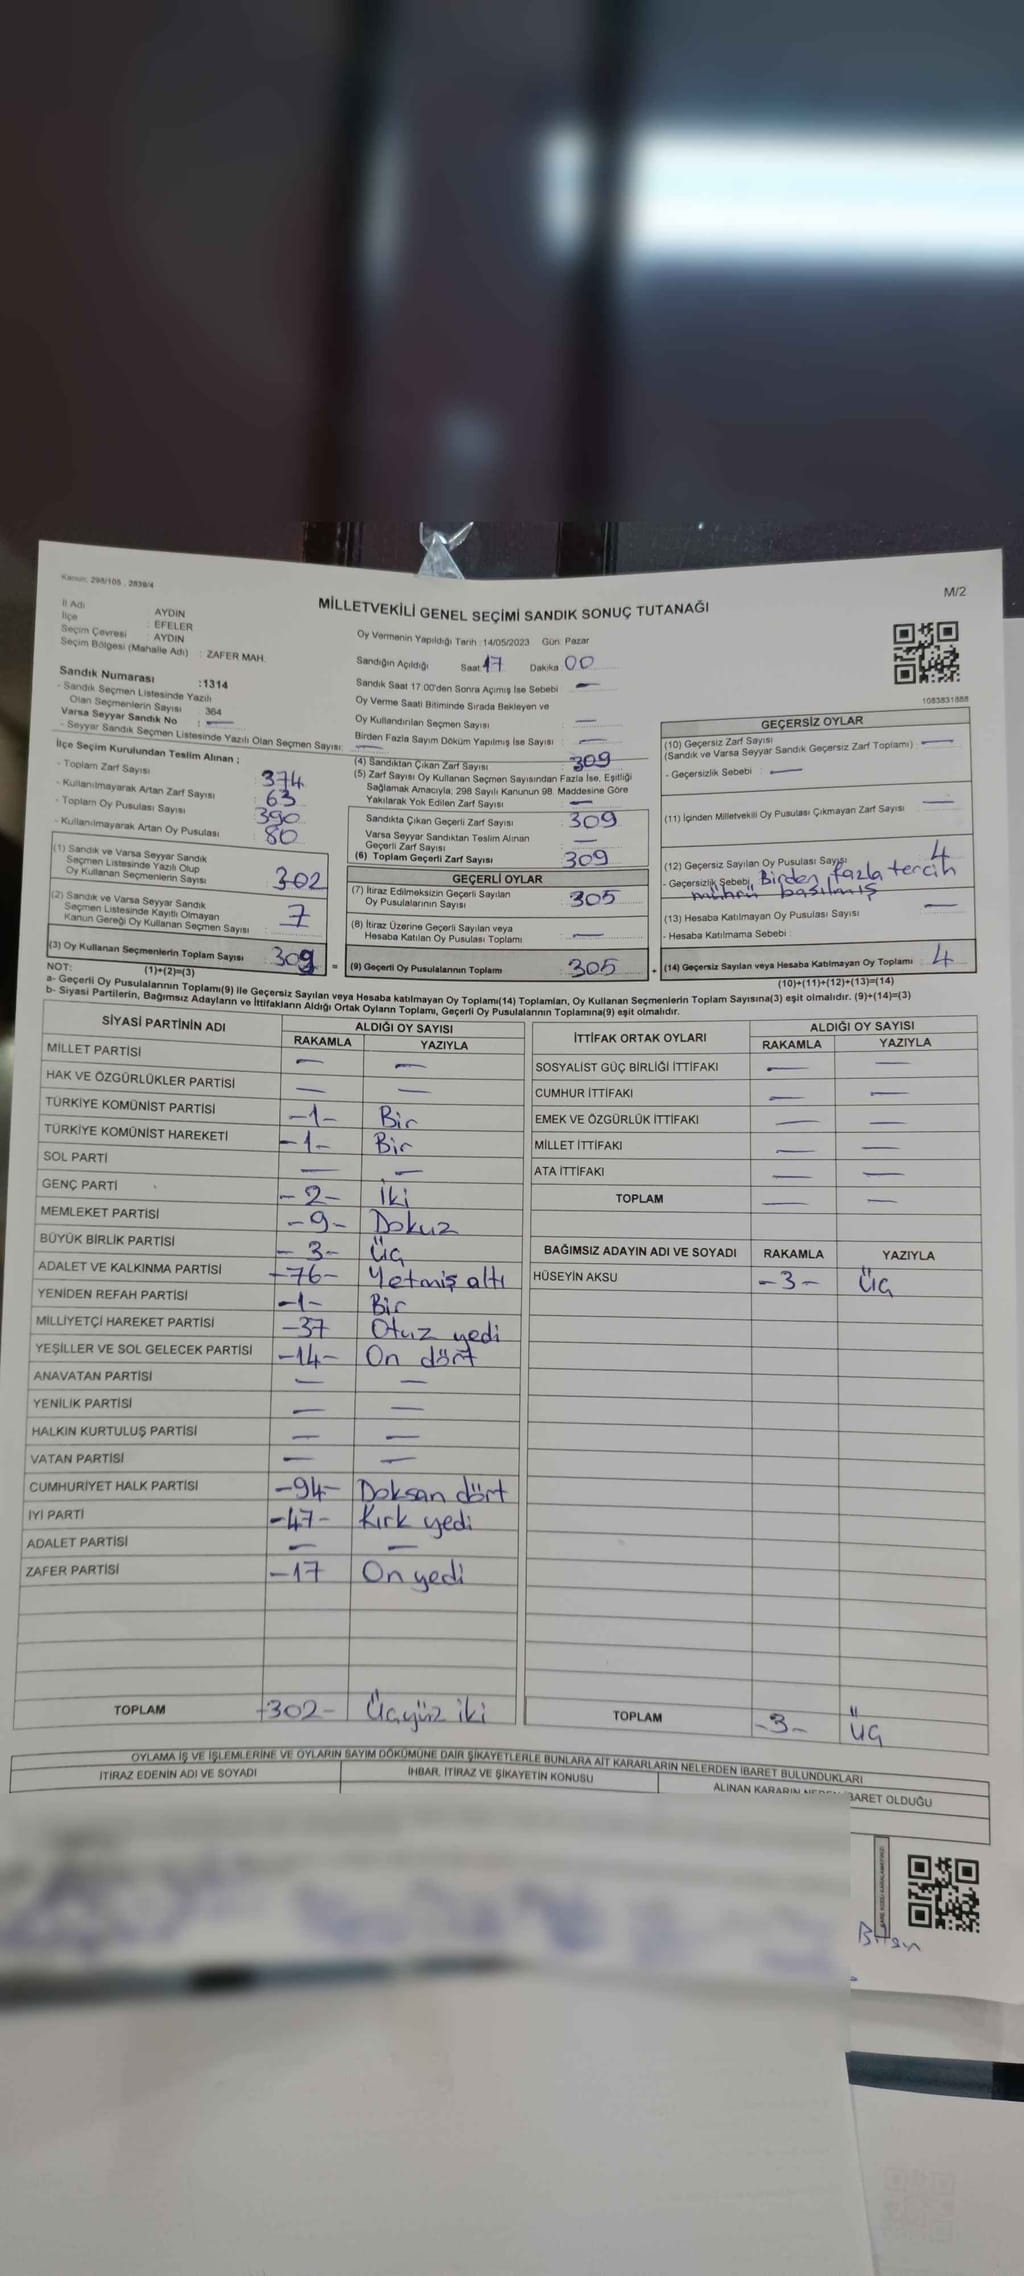 Kanun: 298/105 , 2839/4
M/2
MİLLETVEKİLİ GENEL SEÇİMİ SANDIK SONUÇ TUTANAĞI
İl Adı : AYDIN
İlçe : EFELER
Seçim Çevresi : AYDIN
Seçim Bölgesi (Mahalle Adı) : ZAFER MAH.
Sandık Numarası :1314
- Sandık Seçmen Listesinde Yazılı
Olan Seçmenlerin Sayısı : 364
Varsa Seyyar Sandık No : —
- Seyyar Sandık Seçmen Listesinde Yazılı Olan Seçmen Sayısı: —
İlçe Seçim Kurulundan Teslim Alınan ;
- Toplam Zarf Sayısı : 374
- Kullanılmayarak Artan Zarf Sayısı : 63
- Toplam Oy Pusulası Sayısı : 390
- Kullanılmayarak Artan Oy Pusulası : 80
(1) Sandık ve Varsa Seyyar Sandık
Seçmen Listesinde Yazılı Olup
Oy Kullanan Seçmenlerin Sayısı : 302
(2) Sandık ve Varsa Seyyar Sandık
Seçmen Listesinde Kayıtlı Olmayan
Kanun Gereği Oy Kullanan Seçmen Sayısı : 7
(3) Oy Kullanan Seçmenlerin Toplam Sayısı : 309 =
(1)+(2)=(3)
Oy Vermenin Yapıldığı Tarih :14/05/2023 Gün: Pazar
Sandığın Açıldığı Saat 17 Dakika 00
Sandık Saat 17:00'den Sonra Açılmış İse Sebebi : —
Oy Verme Saati Bitiminde Sırada Bekleyen ve
Oy Kullandırılan Seçmen Sayısı : —
Birden Fazla Sayım Döküm Yapılmış İse Sayısı : —
(4) Sandıktan Çıkan Zarf Sayısı : 309
(5) Zarf Sayısı Oy Kullanan Seçmen Sayısından Fazla İse, Eşitliği
Sağlamak Amacıyla; 298 Sayılı Kanunun 98. Maddesine Göre
Yakılarak Yok Edilen Zarf Sayısı : —
Sandıkta Çıkan Geçerli Zarf Sayısı : 309
Varsa Seyyar Sandıktan Teslim Alınan
Geçerli Zarf Sayısı : —
(6) Toplam Geçerli Zarf Sayısı : 309
GEÇERLİ OYLAR
(7) İtiraz Edilmeksizin Geçerli Sayılan
Oy Pusulalarının Sayısı : 305
(8) İtiraz Üzerine Geçerli Sayılan veya
Hesaba Katılan Oy Pusulası Toplamı : —
(9) Geçerli Oy Pusulalarının Toplamı : 305 +
1083831888
GEÇERSİZ OYLAR
(10) Geçersiz Zarf Sayısı
(Sandık ve Varsa Seyyar Sandık Geçersiz Zarf Toplamı) : —
- Geçersizlik Sebebi : —
(11) İçinden Milletvekili Oy Pusulası Çıkmayan Zarf Sayısı : —
(12) Geçersiz Sayılan Oy Pusulası Sayısı : 4
- Geçersizlik Sebebi : Birden fazla tercih
mührü basılmış
(13) Hesaba Katılmayan Oy Pusulası Sayısı : —
- Hesaba Katılmama Sebebi :
(14) Geçersiz Sayılan veya Hesaba Katılmayan Oy Toplamı : 4
(10)+(11)+(12)+(13)=(14)
NOT:
a- Geçerli Oy Pusulalarının Toplamı(9) ile Geçersiz Sayılan veya Hesaba katılmayan Oy Toplamı(14) Toplamları, Oy Kullanan Seçmenlerin Toplam Sayısına(3) eşit olmalıdır. (9)+(14)=(3)
b- Siyasi Partilerin, Bağımsız Adayların ve İttifakların Aldığı Ortak Oyların Toplamı, Geçerli Oy Pusulalarının Toplamına(9) eşit olmalıdır.
SİYASİ PARTİNİN ADI ALDIĞI OY SAYISI
RAKAMLA YAZIYLA
MİLLET PARTİSİ — —
HAK VE ÖZGÜRLÜKLER PARTİSİ — —
TÜRKİYE KOMÜNİST PARTİSİ -1- Bir
TÜRKİYE KOMÜNİST HAREKETİ -1- Bir
SOL PARTİ — —
GENÇ PARTİ -2- İki
MEMLEKET PARTİSİ -9- Dokuz
BÜYÜK BİRLİK PARTİSİ -3- Üç
ADALET VE KALKINMA PARTİSİ -76- Yetmiş altı
YENİDEN REFAH PARTİSİ -1- Bir
MİLLİYETÇİ HAREKET PARTİSİ -37 Otuz yedi
YEŞİLLER VE SOL GELECEK PARTİSİ -14- On dört
ANAVATAN PARTİSİ — —
YENİLİK PARTİSİ — —
HALKIN KURTULUŞ PARTİSİ — —
VATAN PARTİSİ — —
CUMHURİYET HALK PARTİSİ -94- Doksan dört
İYİ PARTİ -47- Kırk yedi
ADALET PARTİSİ — —
ZAFER PARTİSİ -17 On yedi
TOPLAM -302- Üçyüz iki
İTTİFAK ORTAK OYLARI ALDIĞI OY SAYISI
RAKAMLA YAZIYLA
SOSYALİST GÜÇ BİRLİĞİ İTTİFAKI — —
CUMHUR İTTİFAKI — —
EMEK VE ÖZGÜRLÜK İTTİFAKI — —
MİLLET İTTİFAKI — —
ATA İTTİFAKI — —
TOPLAM — —
BAĞIMSIZ ADAYIN ADI VE SOYADI RAKAMLA YAZIYLA
HÜSEYİN AKSU -3- Üç
TOPLAM -3- Üç
OYLAMA İŞ VE İŞLEMLERİNE VE OYLARIN SAYIM DÖKÜMÜNE DAİR ŞİKAYETLERLE BUNLARA AİT KARARLARIN NELERDEN İBARET BULUNDUKLARI
İTİRAZ EDENİN ADI VE SOYADI İHBAR, İTİRAZ VE ŞİKAYETİN KONUSU ALINAN KARARIN NEDEN İBARET OLDUĞU